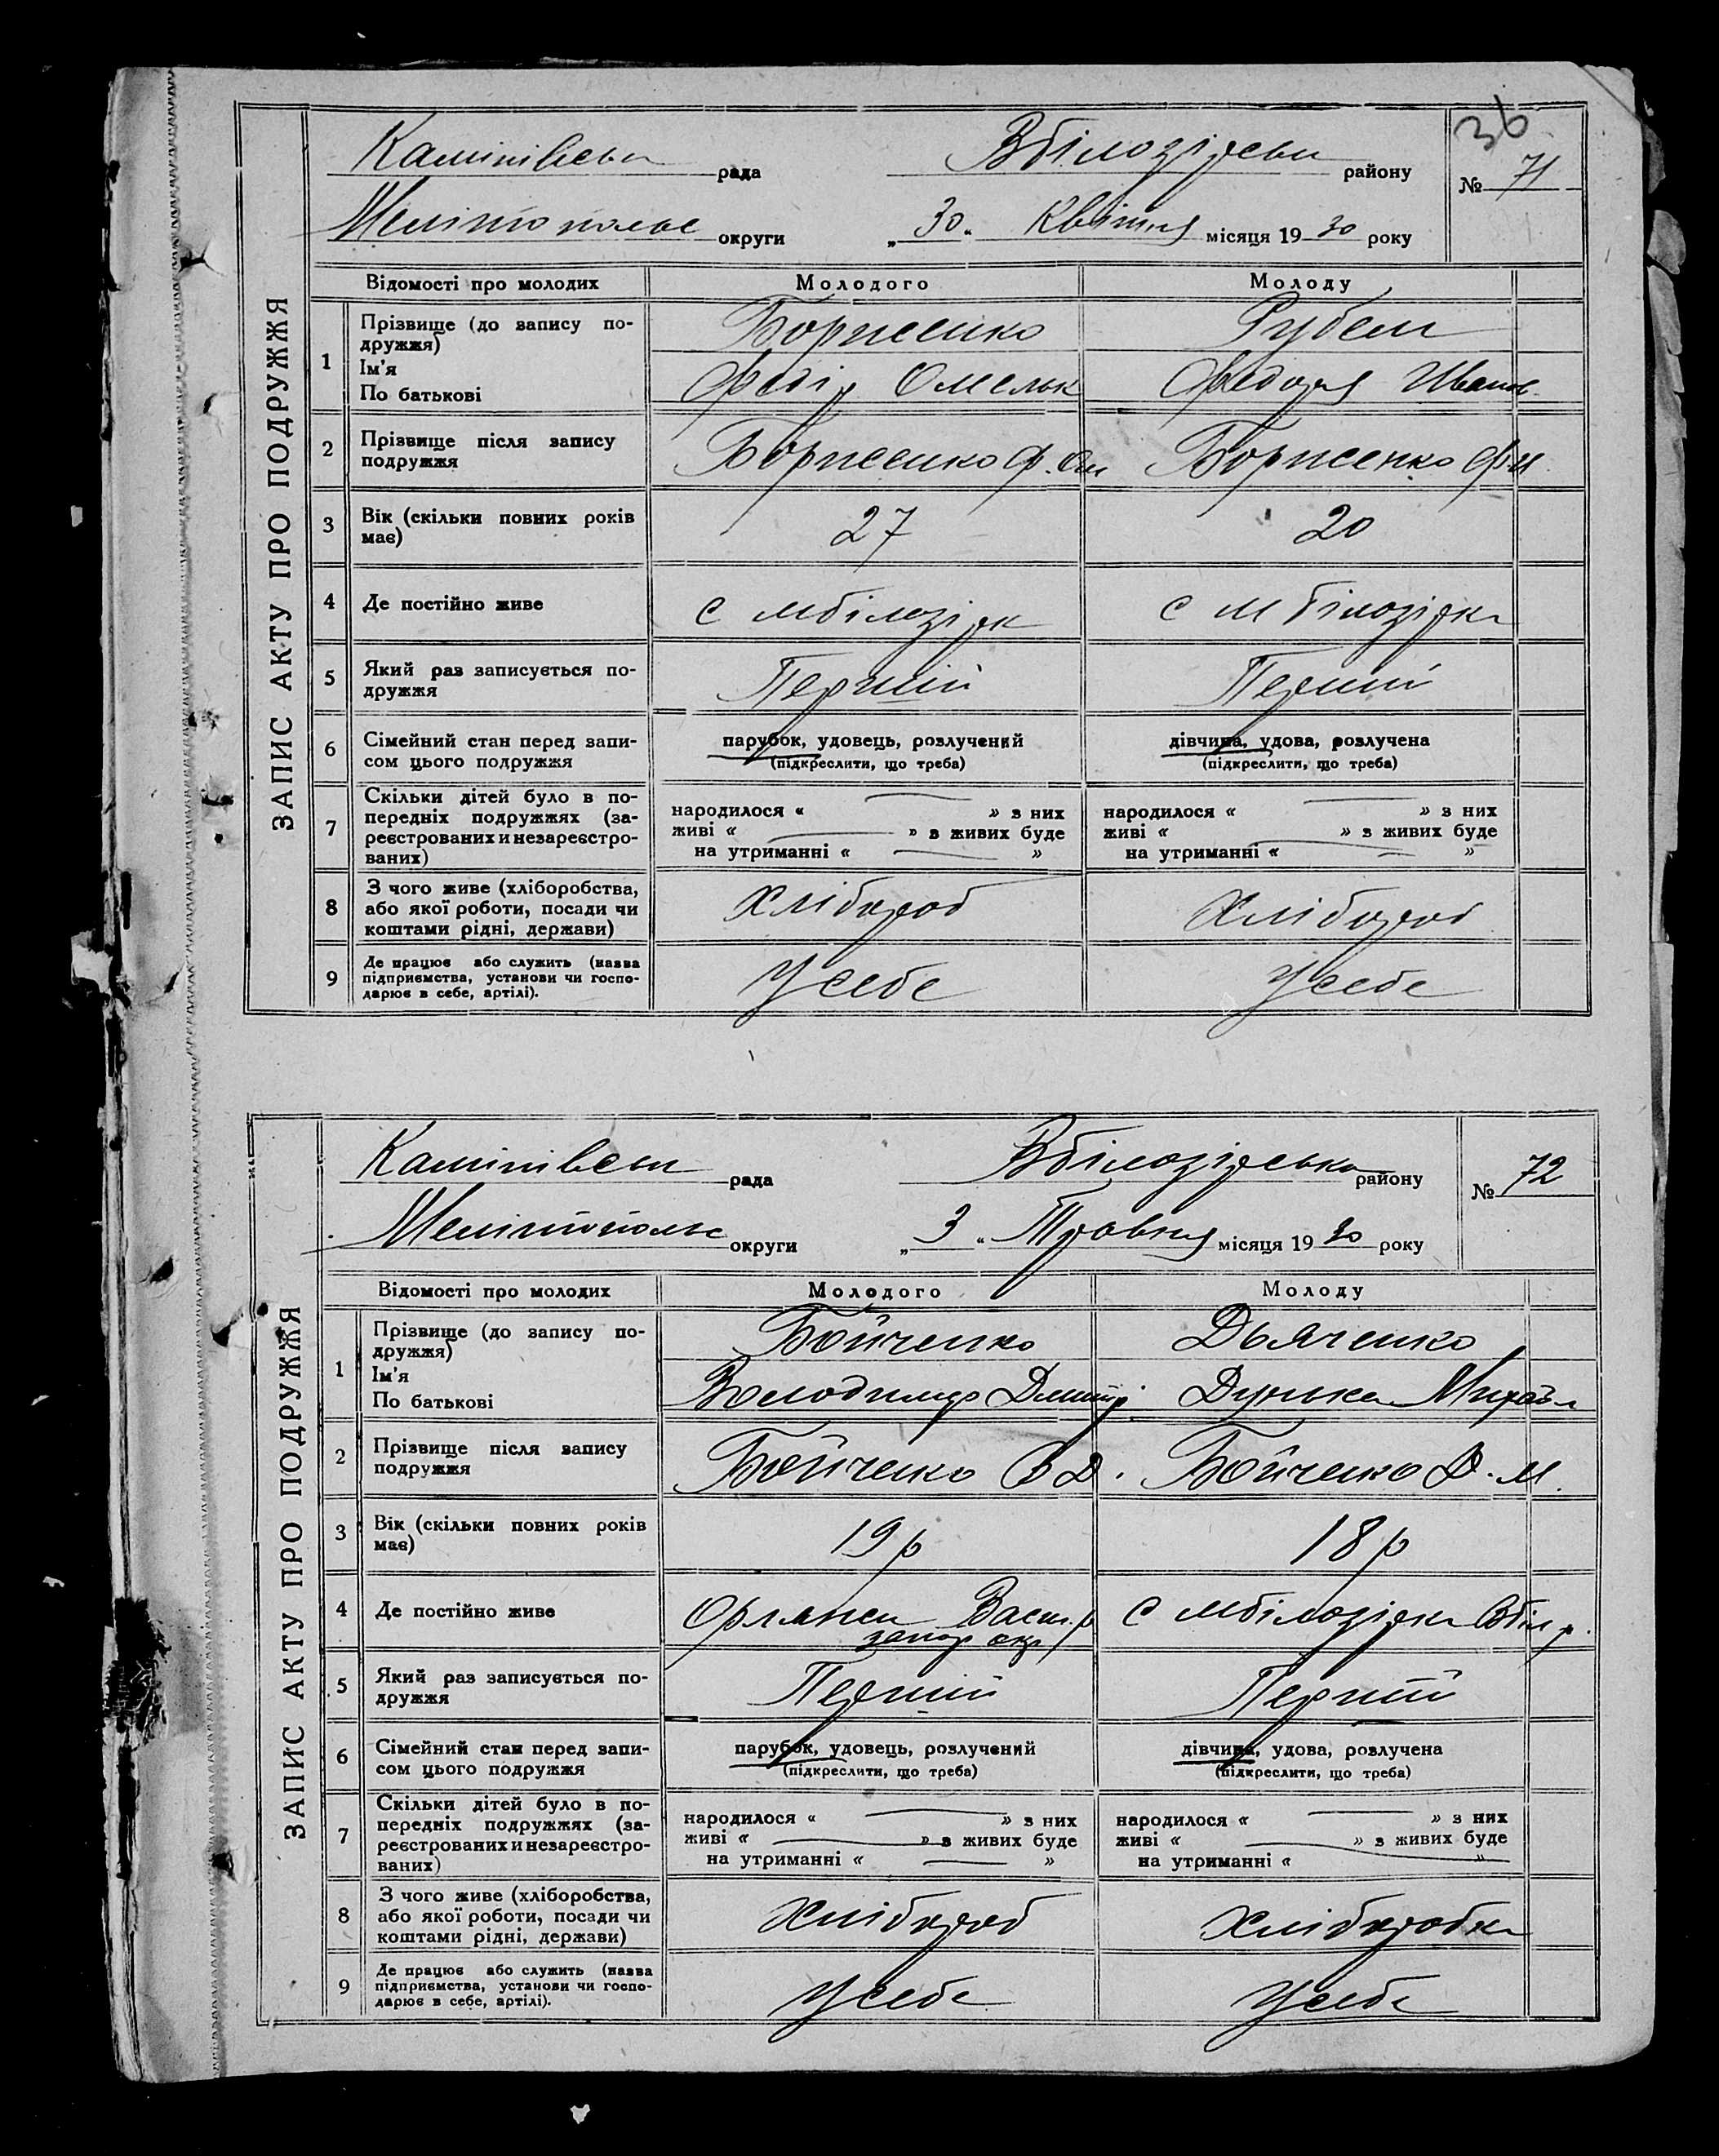 36
рада
Вбілозірськ району
№ 71
округи
„30“ Квітня місяця 1930 року
ЗАПИС АКТУ ПРО ПОДРУЖЖЯ
Відомості про молодих
Молодого
Молоду
1
Прізвище (до запису по-
дружжя)
Ім'я
По батькові
Борисенко
Федір Омельк
Рубель
Федора Иванов
2
Прізвище після запису
подружжя
Борисенко Ф. Ом
Борисенко Ф И
3
Вік (скільки повних років
має)
27
20
4
Де постійно живе
с мбілозірк
с м білозірка
5
Який раз записується по-
дружжя
Перший
Перший
6
Сімейний стан перед запи-
сом цього подружжя
парубок, удовець, розлучений
(підкреслити, що треба)
дівчина, удова, розлучена
(підкреслити, що треба)
7
Скільки дітей було в по-
передніх подружжях (за-
реєстрованих и незареєстро-
ваних)
народилося « — » з них
живі « — » з живих буде
на утриманні « — »
народилося « — » з них
живі « — » з живих буде
на утриманні « — »
8
З чого живе (хліборобства,
або якої роботи, посади чи
коштами рідні, держави)
Хлібороб
Хлібороб
9
Де працює або служить (назва
підприємства, установи чи госпо-
дарює в себе, артілі).
У себе
У себе
рада
Вбілозірська району
№ 72
Мелітопольс округи
„3“ Травня місяця 1930 року
ЗАПИС АКТУ ПРО ПОДРУЖЖЯ
Відомості про молодих
Молодого
Молоду
1
Прізвище (до запису по-
дружжя)
Ім'я
По батькові
Бойченко
Володимир Дмитр.
Дьяченко
Дунька Михайл
2
Прізвище після запису
подружжя
Бойченко В Д.
Бойченко Д. М.
3
Вік (скільки повних років
має)
19 р
18 р
4
Де постійно живе
Васил. р
запор окр
с мбілозірка Вбіл р.
5
Який раз записується по-
дружжя
Перший
Перший
6
Сімейний стан перед запи-
сом цього подружжя
парубок, удовець, розлучений
(підкреслити, що треба)
дівчина, удова, розлучена
(підкреслити, що треба)
7
Скільки дітей було в по-
передніх подружжях (за-
реєстрованих и незареєстро-
ваних)
народилося « — » з них
живі « — » з живих буде
на утриманні « — »
народилося « — » з них
живі « — » з живих буде
на утриманні « — »
8
З чого живе (хліборобства,
або якої роботи, посади чи
коштами рідні, держави)
Хлібороб
Хліборобка
9
Де працює або служить (назва
підприємства, установи чи госпо-
дарює в себе, артілі).
У себе
У себе